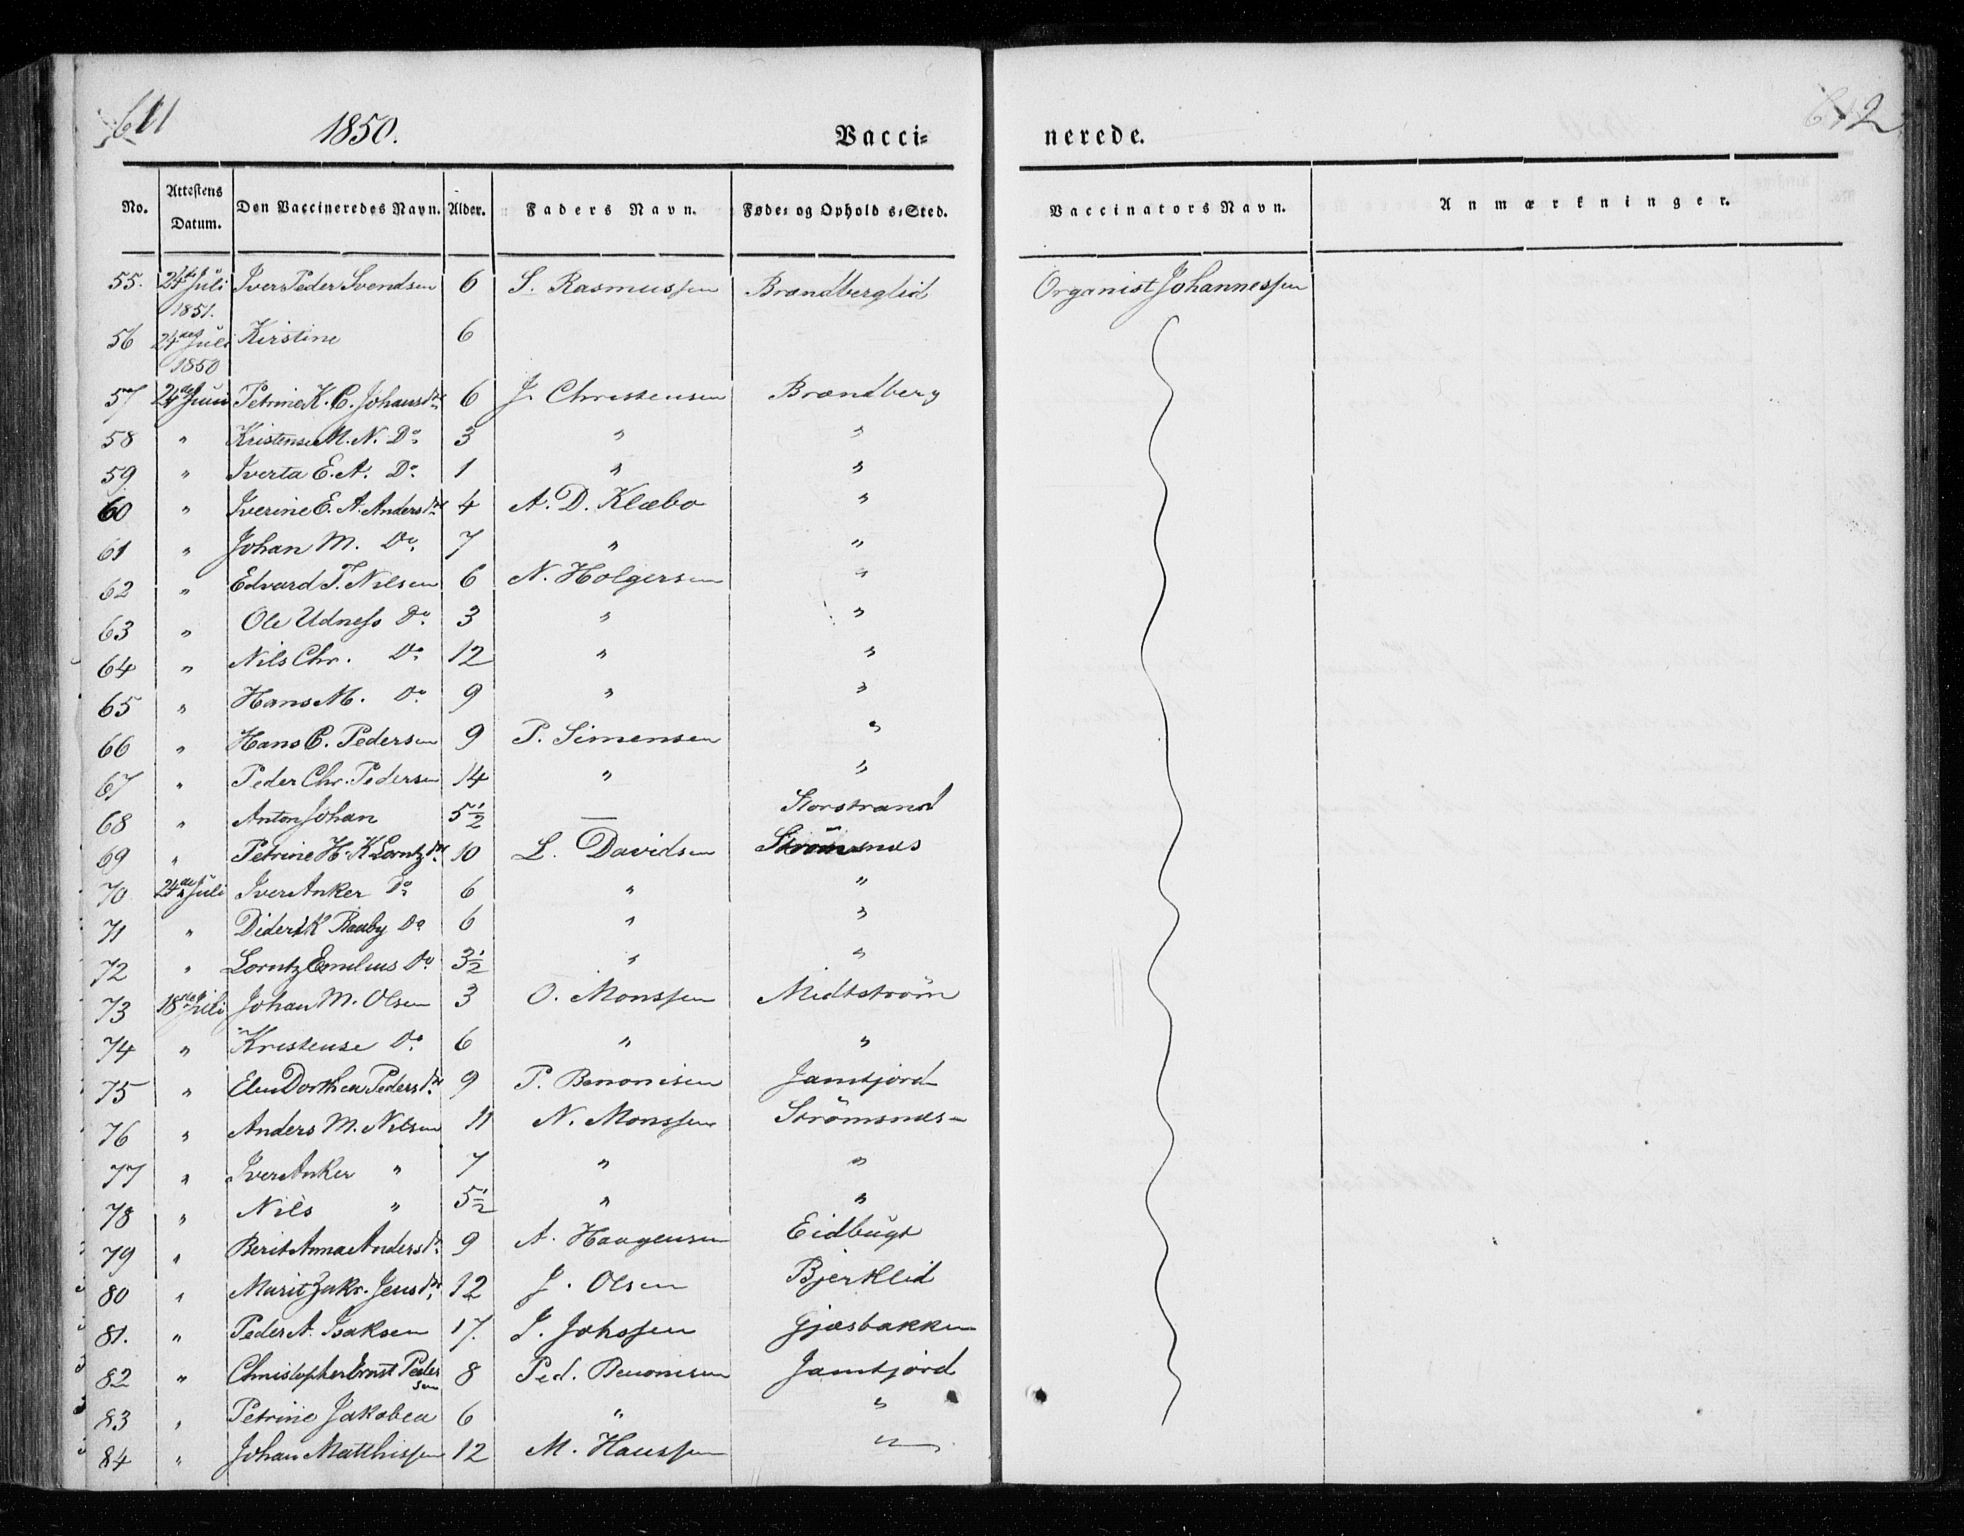 611 1850. Vacci= nerede. 612
No. Attestens Datum. Den Vaccineredes Navn. Alder. Faders Navn. Føde= og Ophold s=Sted. Vaccinators Navn. Anmærkninger.
55. 24de Juli 1851. Iver Peder Svendsen 6 S. Rasmussen Brandberglid Organist Johannessen
56 24de Juli 1850 Kirstine 6
57 24de Juni Petrine K. C. Johansdtr 6 J. Christensen Brandberg
58 " Kristense M. N. Do 3 " "
59. " Iverta E. A. Do 1 " "
60 " Iverine E. A. Andersdtr 4 A. D. Klæbo "
61 " Johan M. Do. 7 " "
62 " Edvard T. Nilsen 6 N. Holgersen "
63 " Ole Udness Do. 3 " "
64 " Nils Chr. Do. 12 " "
65 " Hans M. Do 9 " "
66 " Hans C. Pedersen 9 P. Simensen "
67 " Peder Chr. Pedersen 14 " "
68 " Anton Johan 5½ — Storstrand
69 " Petrine H. K Lorntzdtr 10 L. Davidsen Strömsnes
70 24de Juli Iver Anker Do 6 " "
71 " Diderik Do 6 " "
72 " Lorntz Emilius Do. 3½ " "
73 18de Juli Johan M. Olsen 3 O. Monssen Midtström
74 " Kristense Do. 6 " "
75 " Elen Dorthea Pedersdtr 9 P. Benonisen Jamtjord
76 " Anders M. Nilsen 11 N. Monssen Strömsnes
77 " Iver Anker " 7 " "
78 " Nils " 5½ " "
79 " Berit Anna Andersdtr 9 A. Haagensen Eidbugt
80 " Marit Zakr. Jensdtr 12 J. Olsen Bjerklid
81. " Peder A. Isaksen 17. I. Johssen Gjæsbakken
82 " Christopher Ernst Pedersen 8 Ped. Benonisen Jamtjord
83 " Petrine Jakobea 6 " "
84 " Johan Matthissen 12 M. Hanssen "